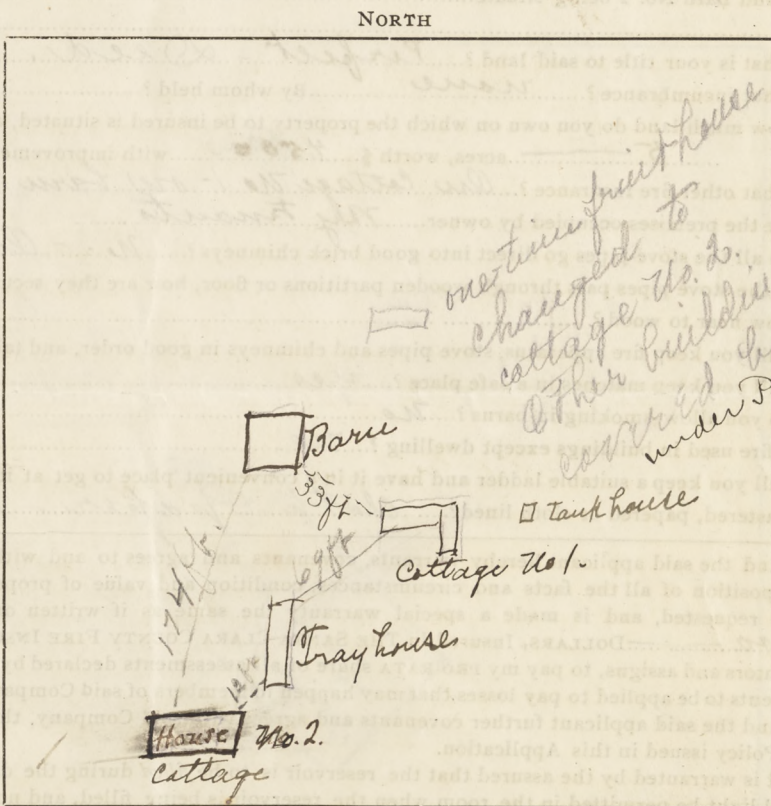 NORTH
one time fruit house
changed to
cottage No. 2.
Other buildin
covered b
under P
Barn
33 ft.
tank house
Cottage No 1.
69 ft
174 ft.
Tray house
House No. 2.
Cottage